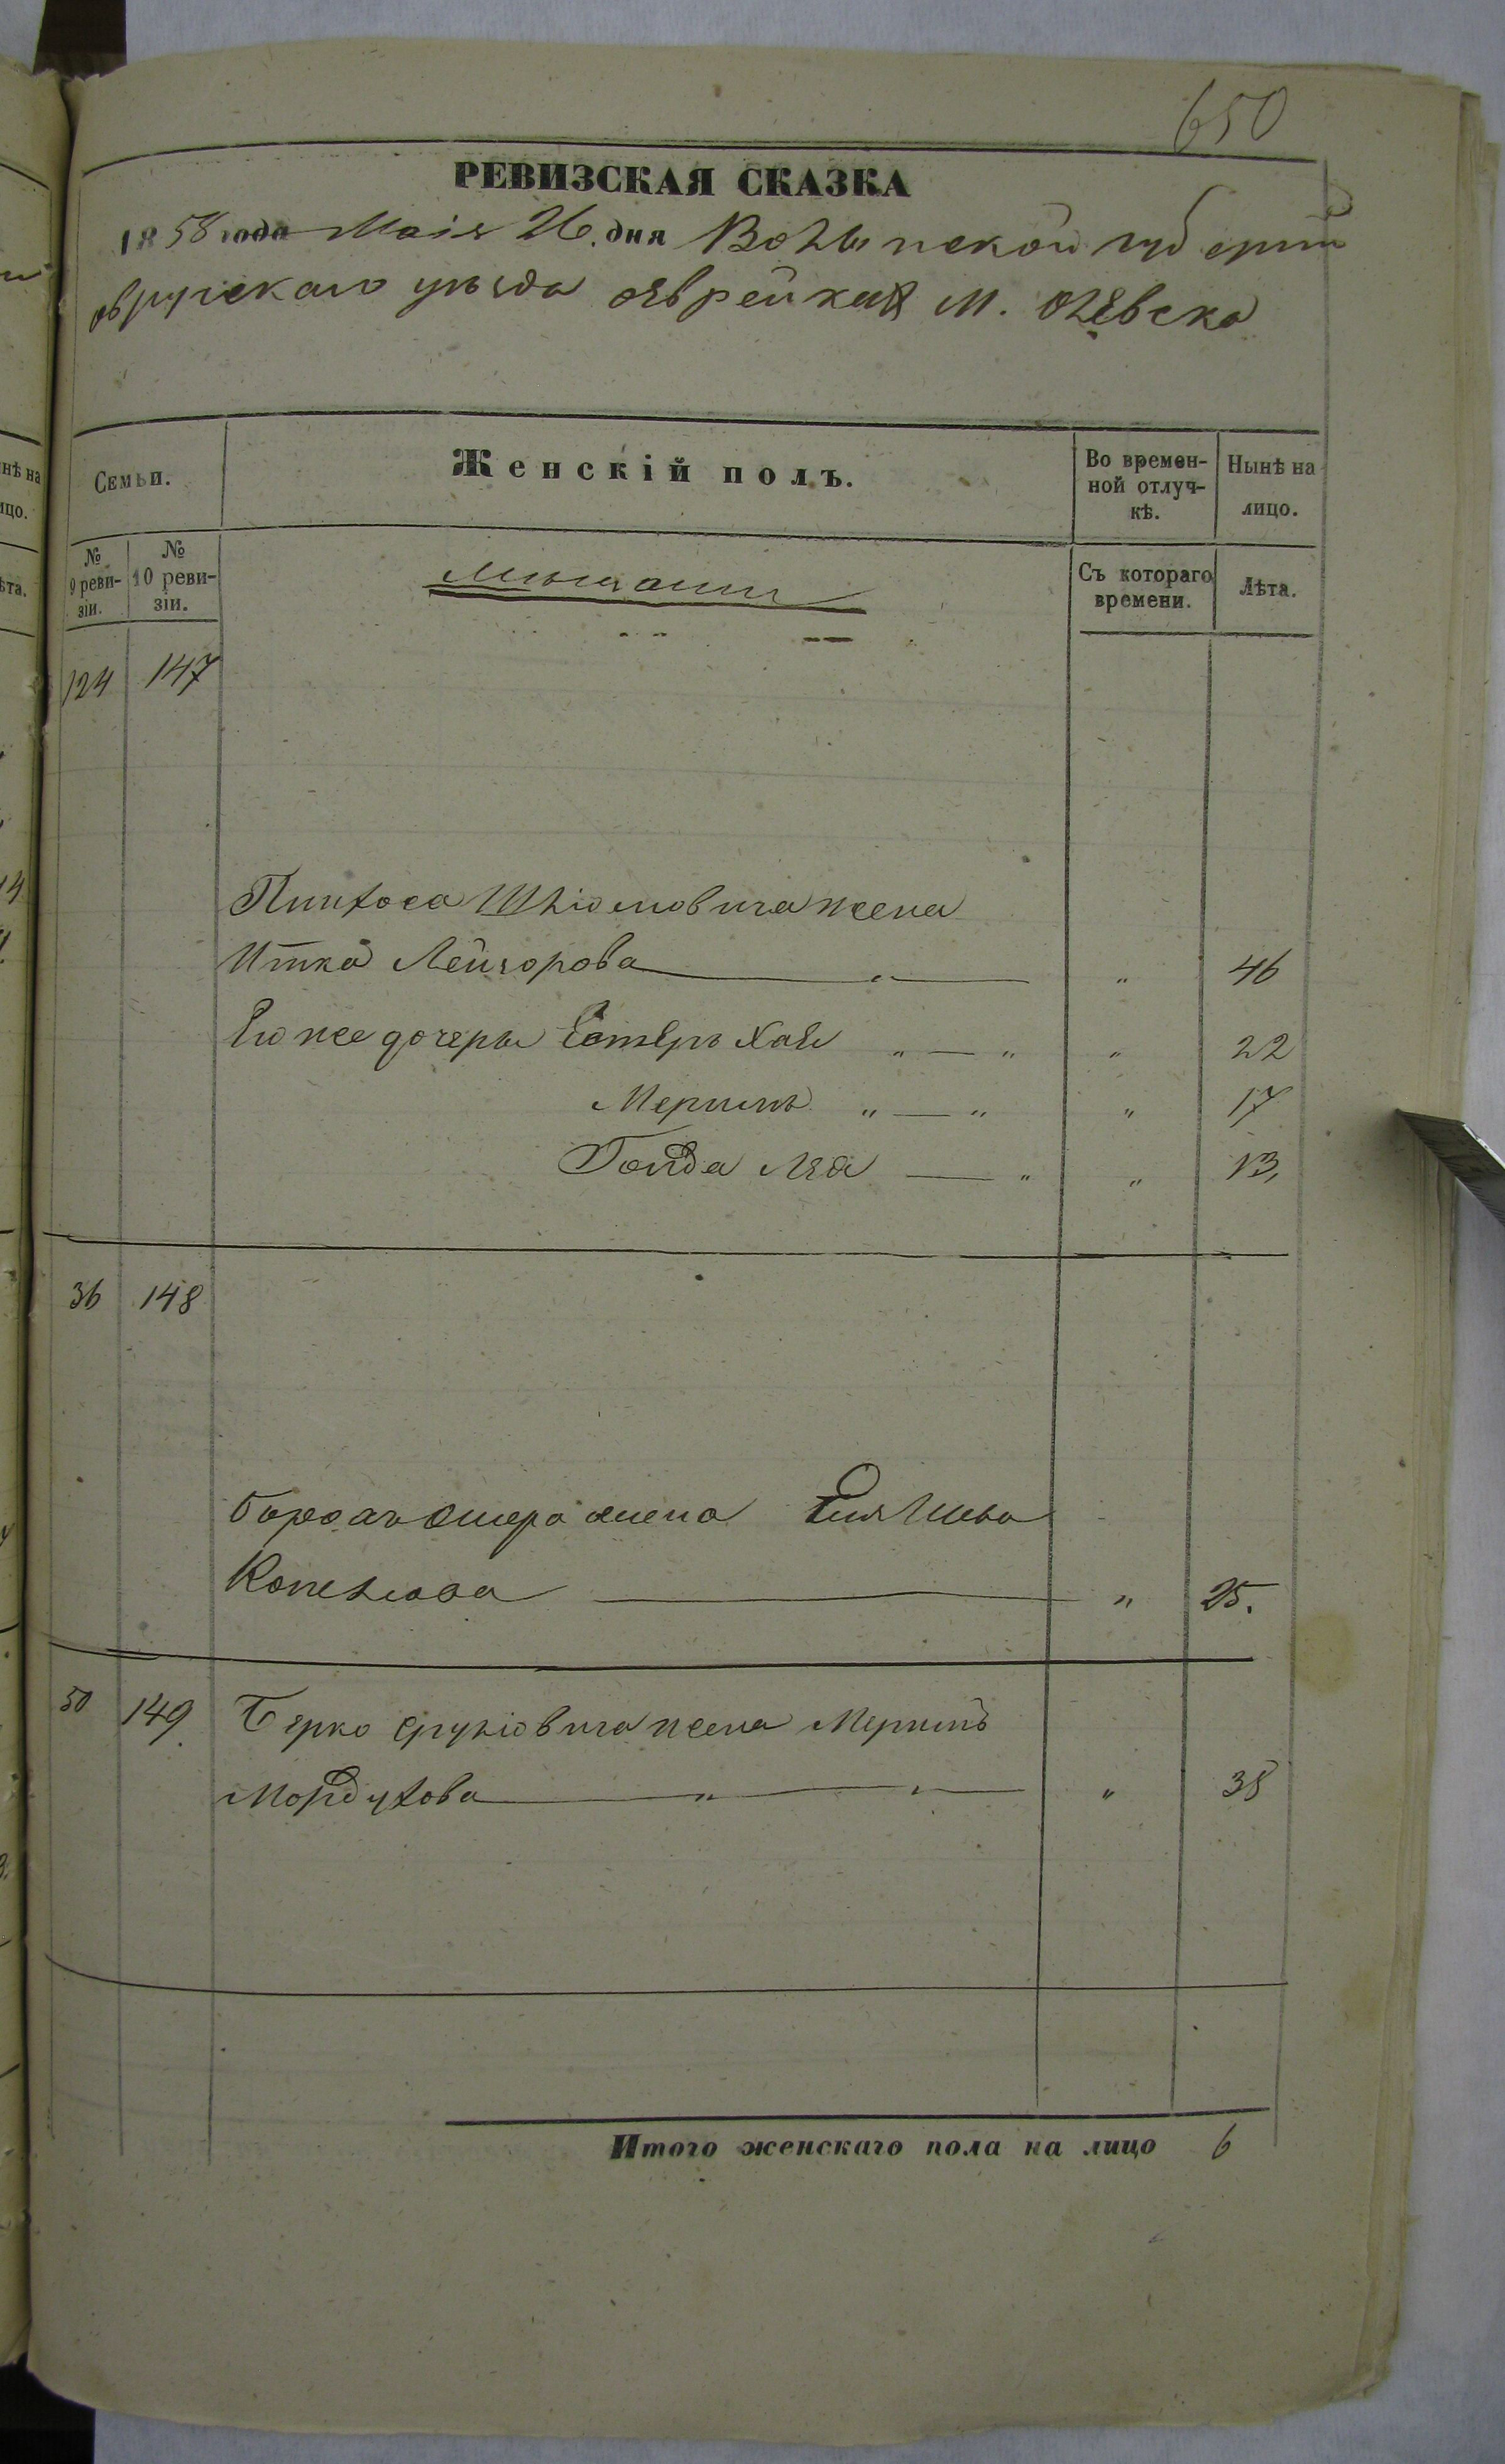 650
РЕВИЗСКАЯ СКАЗКА
1858 года Маія 26 дня Волынской губерніи
овручскаго уѣзда еврейская м. Олевска
Семьи.
Женскій полъ.
Во времен-
ной отлуч-
кѣ.
Нынѣ на
лицо.
№
9 реви-
зіи.
№
10 реви-
зіи.
Мѣщани
Съ котораго
времени.
Лѣта.
124 147
Пинхоса Шліомовича жена
Итка Лейзорова " " 46
Его же дочеры Естеръ Хая " — " " 22
Меримъ " — " " 17
Голда Лея — " " 13,
36 148
Ошера жена
" 25.
50 149. Берко Сруліовича жена Меримъ
Мордухова " " " 38
Итого женскаго пола на лицо 6